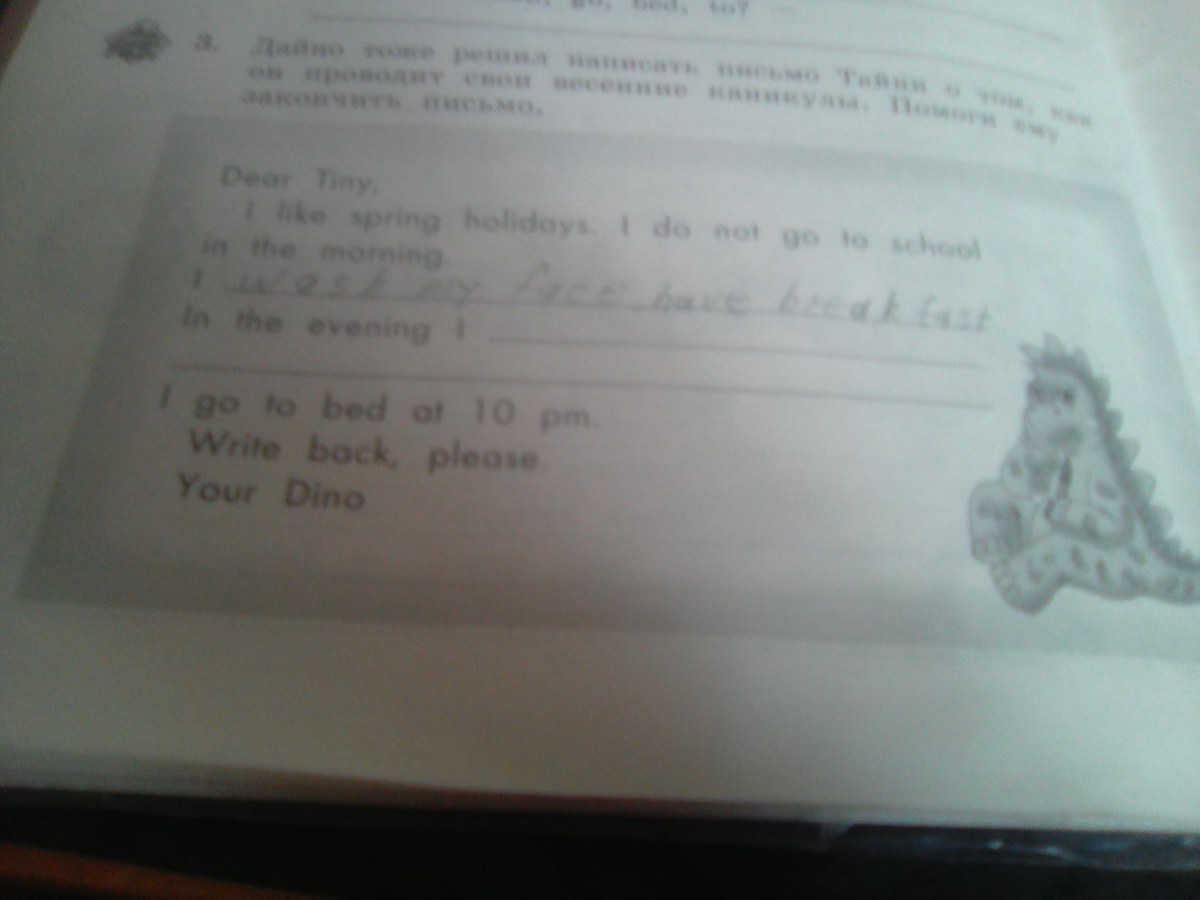 go, bed, to?
3. Дайно тоже решил написать письмо Тайни о том, как
он проводит свои весенние каникулы. Помоги ему
закончить письмо.
Dear Tiny,
I like spring holidays. I do not go to school
in the morning.
I wash my face, have breakfast
In the evening I
I go to bed at 10 pm.
Write back, please.
Your Dino